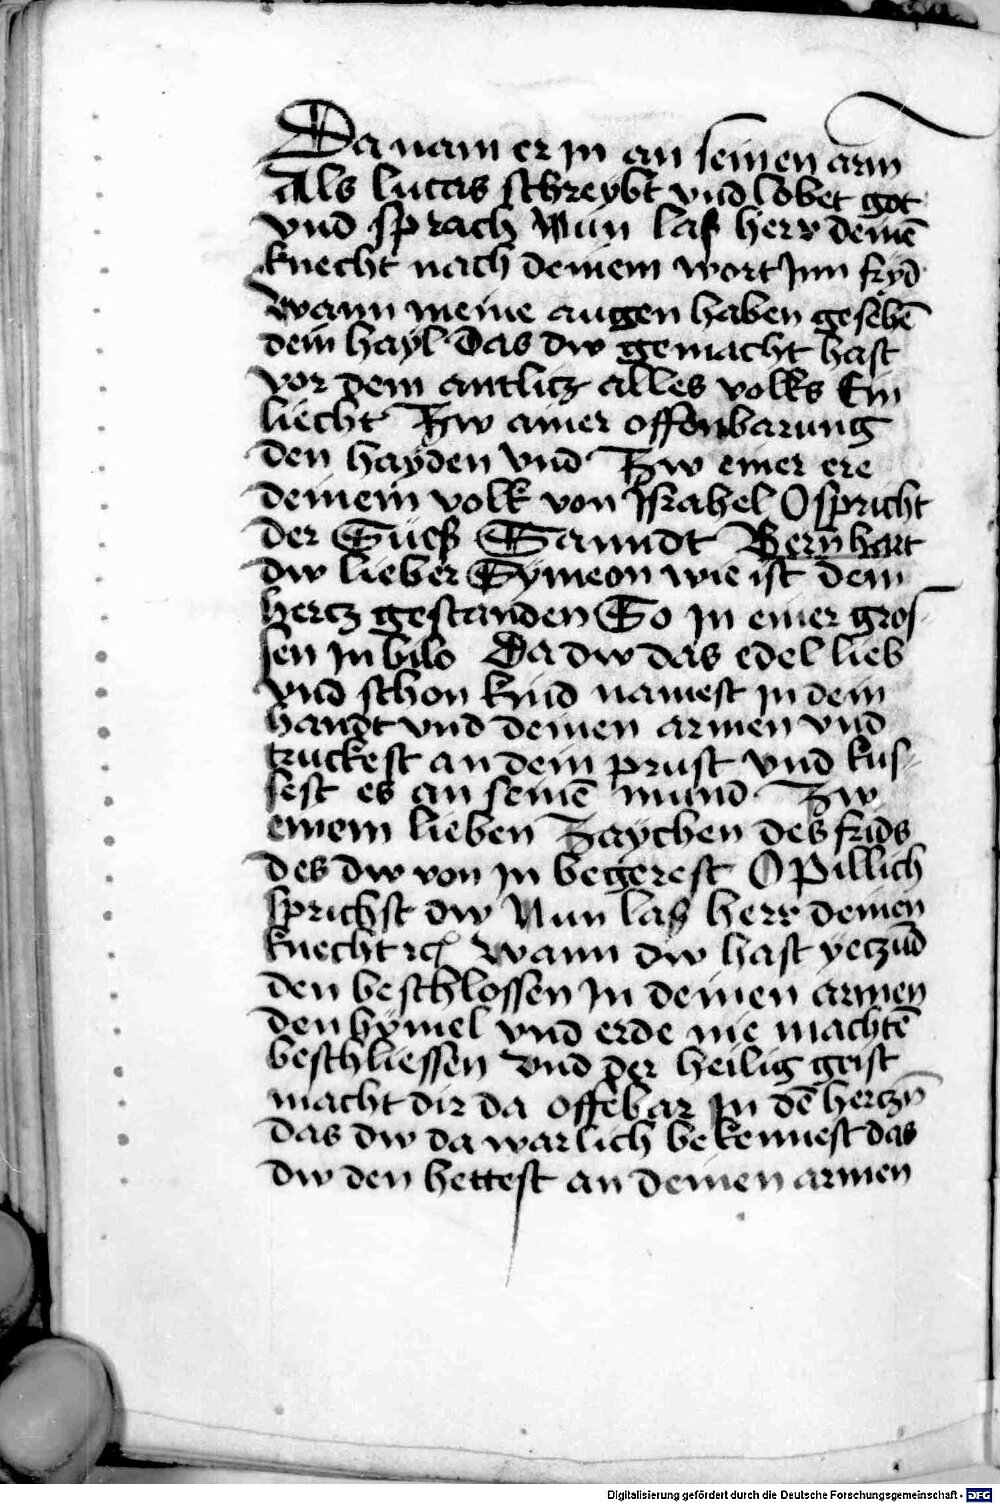 Da nam er jn an seinen arm
Als lucas schreybt vnd lobet got
vnd sprach Nun las herr deinē
knecht nach deinem wort Jnn fryd
wann meine augen haben gesehē
dein hayl Das dw gemacht hast
vor dem antlitz alles volks Ein
liecht Zw ainer offenbarung
den hayden vnd Zw einer ere
deinem volk von Jsrahel O spricht
der Sües Sanndt Bernhart
dw lieber Symeon wie ist dein
hertz gestanden So jn einer gros-
sen jubilo Da dw das edel lieb
vnd schon kind namest jn dein
handt vnd deinen armen vnd
truckest an dein prust vnd kus-
sest es an seinē mund Zw
einem lieben Zaychen des frids
des dw von jn begerest O Pillich
sprichst dw Nun las herr deinen
knecht rc̄ Wann dw hast yeczūd
den beschlossen Jn deinen armen
den hymel vnd erde nie machtē
beschliessen Vnd der heilig geist
macht dir da offēbar jn dē hertzn̄
das dw da warlich bekennest das
dw den hettest an deinen armen
Digitalisierung gefördert durch die Deutsche Forschungsgemeinschaft - DFG